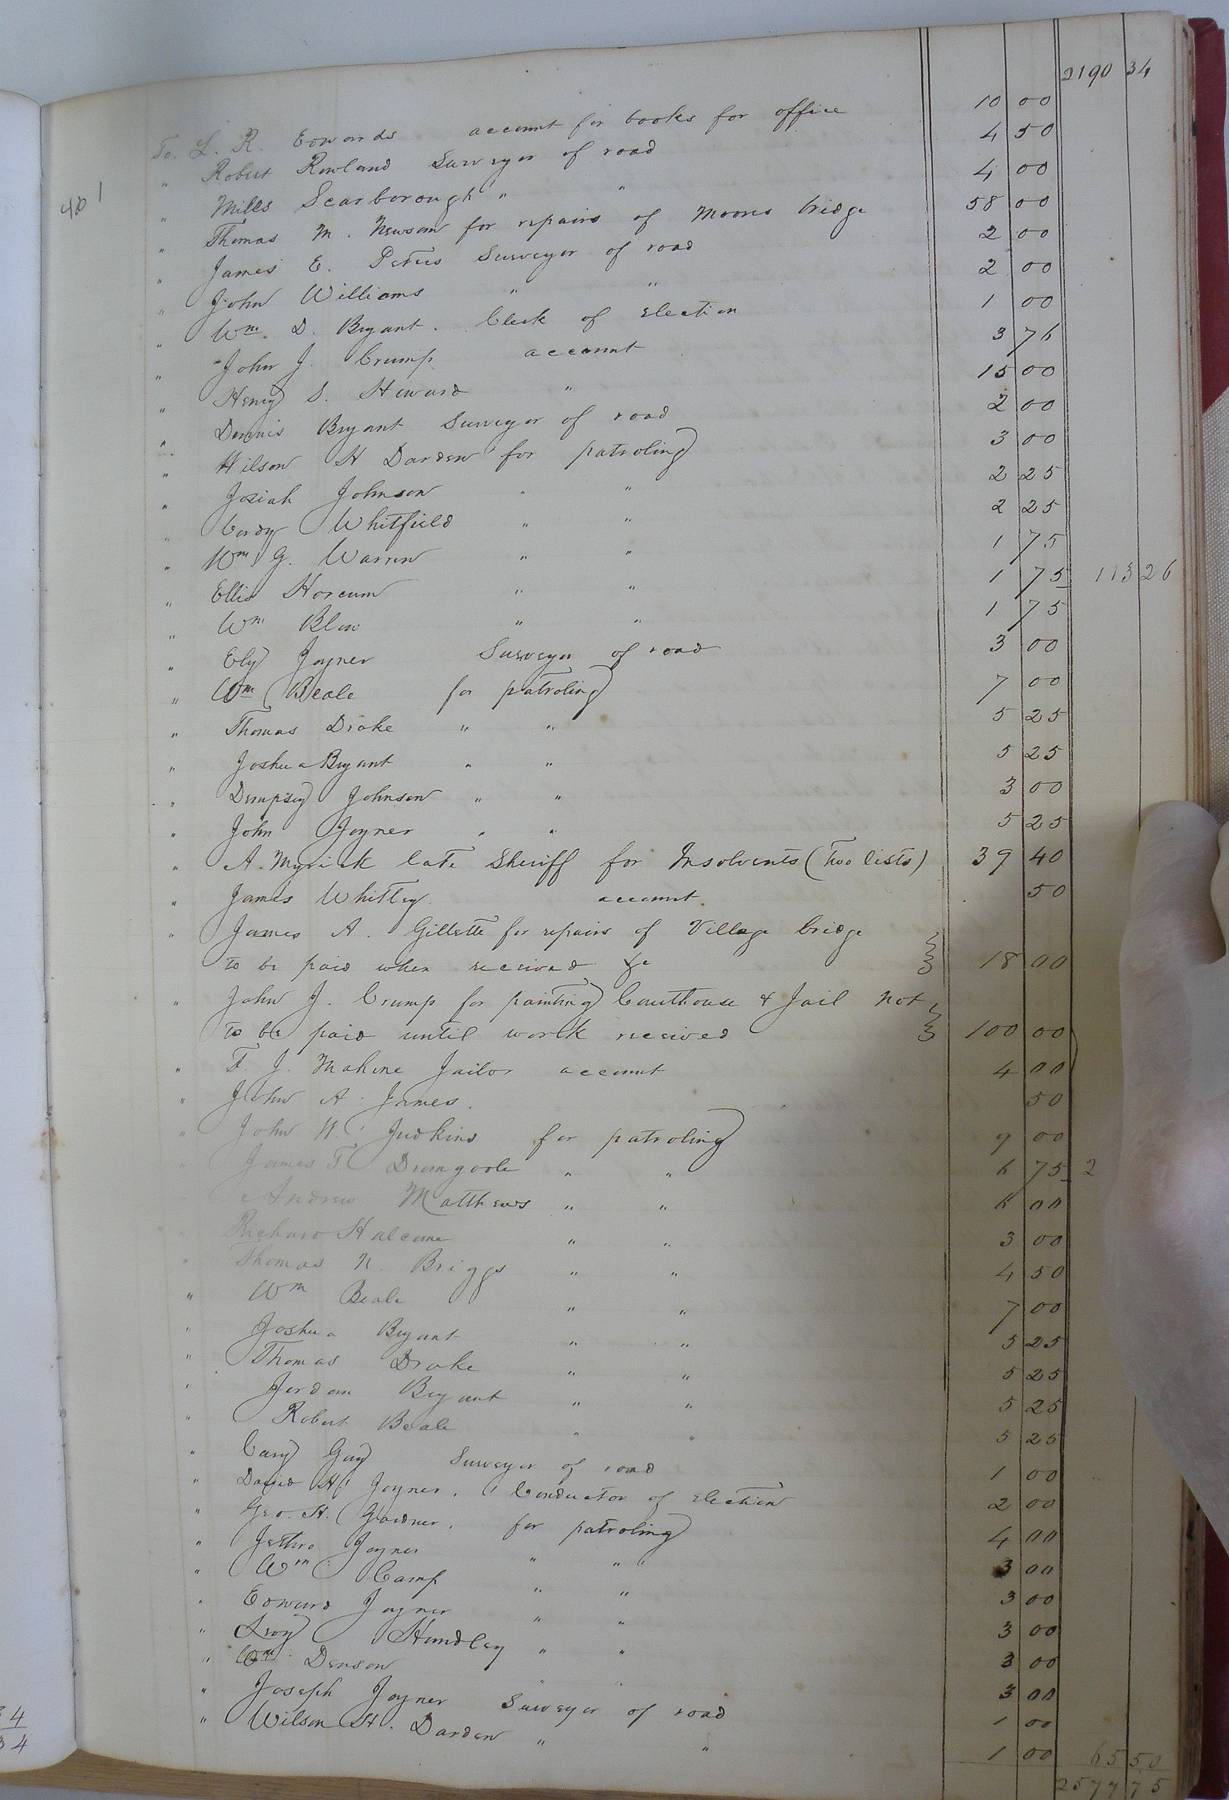 2190 34
To. L. R. Edwards account for books for office 10 00
401
" Robert Rowland Surveyor of road 4 50
" Mills Scarborough " " 4 00
" Thomas M. Newsom for repairs of Moores bridge 58 00
" James E. Peters Surveyor of road 2 00
" John Williams " " 2 00
" Wm. D. Bryant. Clerk of election 1 00
" John J. Crump account 3 76
" Henry S. Steward " 15 00
" Dennis Bryant Surveyor of road 2 00
" Wilson H Darden for patroling 3 00
" Josiah Johnson " " 2 25
" Cordy Whitfield " " 2 25
" Wm G. Warren " " 1 75
" Ellis " " 1 75 113 26
" Wm Blow " " 1 75
" Ely Joyner Surveyor of road 3 00
" Wm Beale for patroling 7 00
" Thomas Drake " " 5 25
" Joshua Bryant " " 5 25
" Dempsey Johnson " " 3 00
" John Joyner " " 5 25
" A. Myrick late Sheriff for Insolvents (two lists) 39 40
" James Whitley account. 50
" James A. Gillette for repairs of Village bridge
to be paid when received &c 18 00
" John J. Crump for painting Courthouse & Jail not
to be paid until work received 100 00
" F. J. Mahone Jailor account 4 00
" John A. James. 50
" John W. Judkins for patroling 9 00
" James T Dromgoole " " 6 75 2
" Andrew Matthews " " 6 00
" Richard Halcome " " 3 00
" Thomas N. Briggs " " 4 50
" Wm Beale " " 7 00
" Joshua Bryant " " 5 25
" Thomas Drake " " 5 25
" Jordan Bryant " " 5 25
" Robert Beale " " 5 25
" Cary Guy Surveyor of road 1 00
" David H. Joyner. Conductor of election 2 00
" Geo. H. Gardner. for patroling 4 00
" Jethro Joyner " " 3 00
" Wm Camp " " 3 00
" Edward Joyner " " 3 00
" Handley " " 3 00
" Wm. Denson " " 3 00
" Joseph Joyner Surveyor of road 1 00
" Wilson H. Darden " " 1 00 65 50
2577 75
34
34